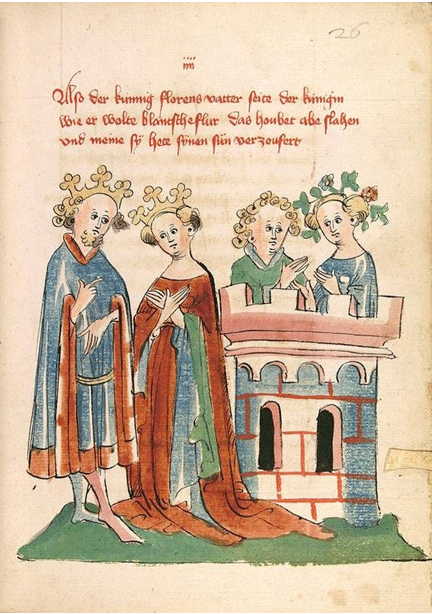 26
iiii
Also der kúnnig florens vatter seite der kúnigin
wie er wolte blantscheflur das houbet abe slahen
vnd meine sÿ hete sÿnen sún verzoufert